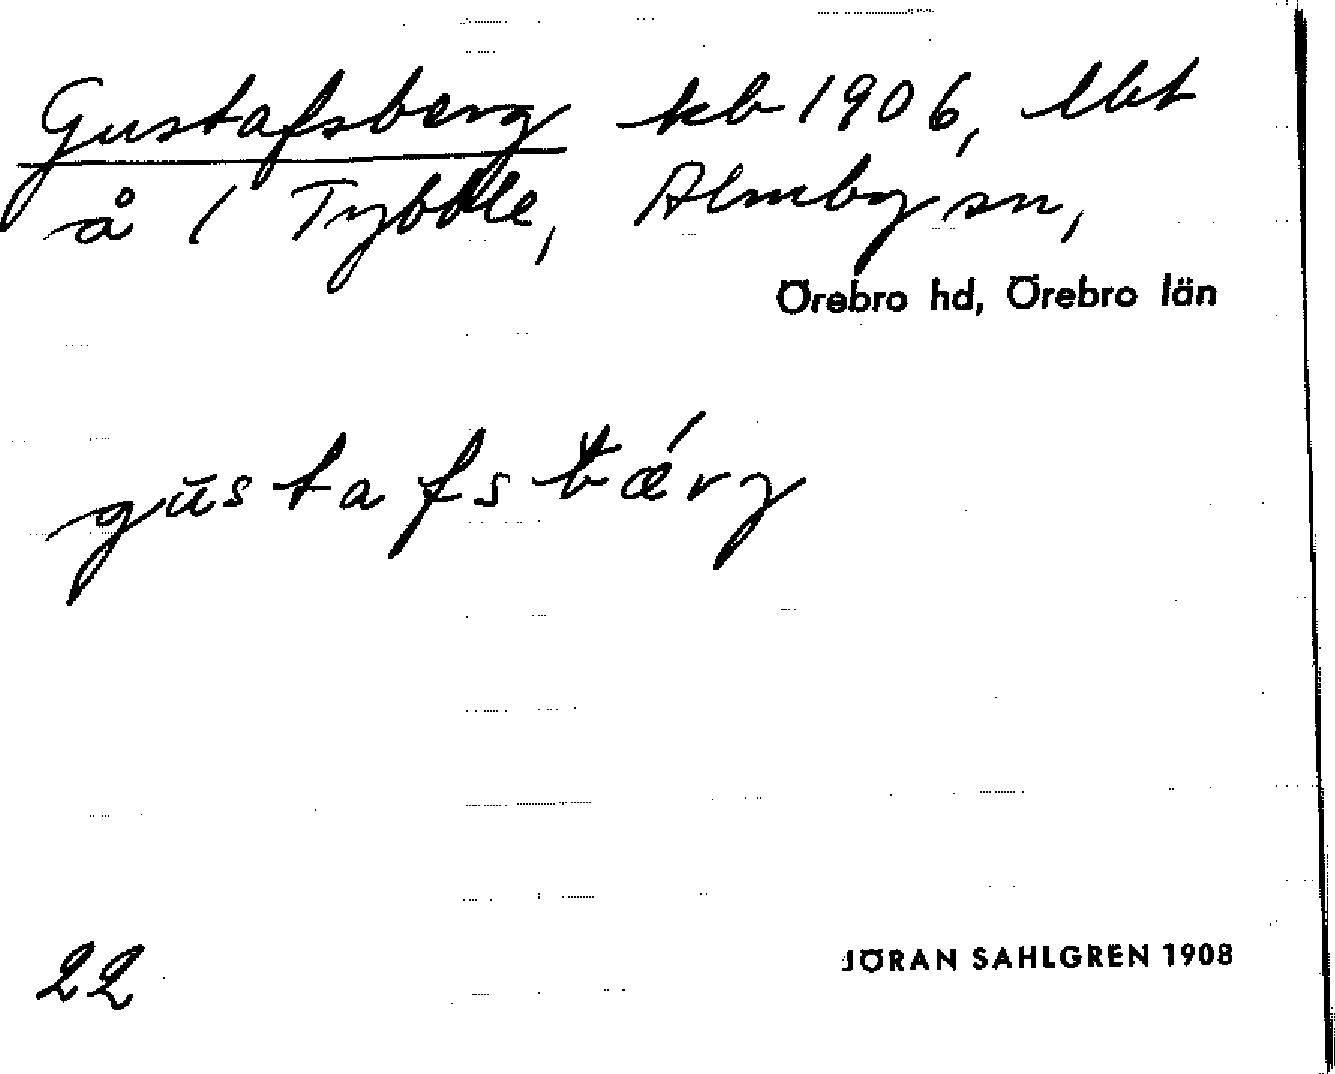 Gustafsberg kb 1906, lbt
å 1 Tybble, Almby sn,
Örebro hd, Örebro län
gustafsbǽrg
22
JÖRAN SAHLGREN 1908